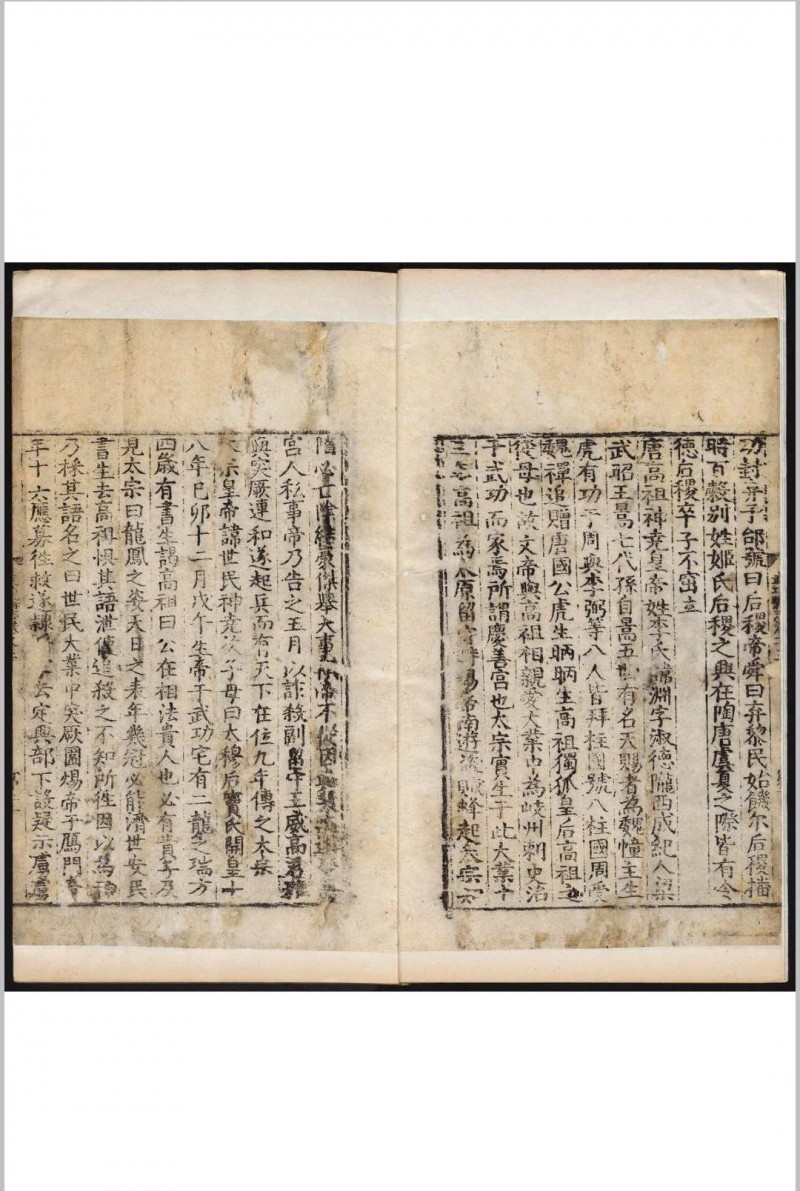 功封弃于邰號曰后稷帝舜曰弃黎民始饑尔后稷播
時百穀别姓姬氏后稷之興在陶唐虞夏之際皆有令
德后稷卒子不窋立
唐高祖神堯皇帝姓李氏諱淵字淑德隴西成紀人梁
武昭王暠七代孫自暠五世有名天賜者為魏幢主生
虎有功于周與李弼等八人皆拜柱國號八柱國周受
魏禪追贈唐國公虎生昞昞生高祖獨孤皇后高祖之
從母也故文帝與高祖相親愛大業中為岐州刺史治
于武功而家焉所謂慶善宮也太宗實生于此大業十
三年高祖為太原留守時煬帝南遊盗賊蜂起太宗知
隋必亡陰結豪傑舉大事帝不從因
宮人私事帝乃告之五月以詐殺副留守王威高君雅
與突厥連和遂起兵而有天下在位九年傳之太宗
太宗皇帝諱世民神堯次子母曰太穆后竇氏開皇十
八年巳卯十二月戊午生帝于武功宅有二龍之瑞方
四歲有書生謁高祖曰公在相法貴人也必有貴子及
見太宗曰龍鳳之姿天日之表年幾冠必能濟世安民
書生去高祖懼其語泄使追殺之不知所往因以為神
乃採其語名之曰世民大業中突厥圍煬帝于鴈門帝
年十六應募往救遂隸 定興部下設疑示虜虜